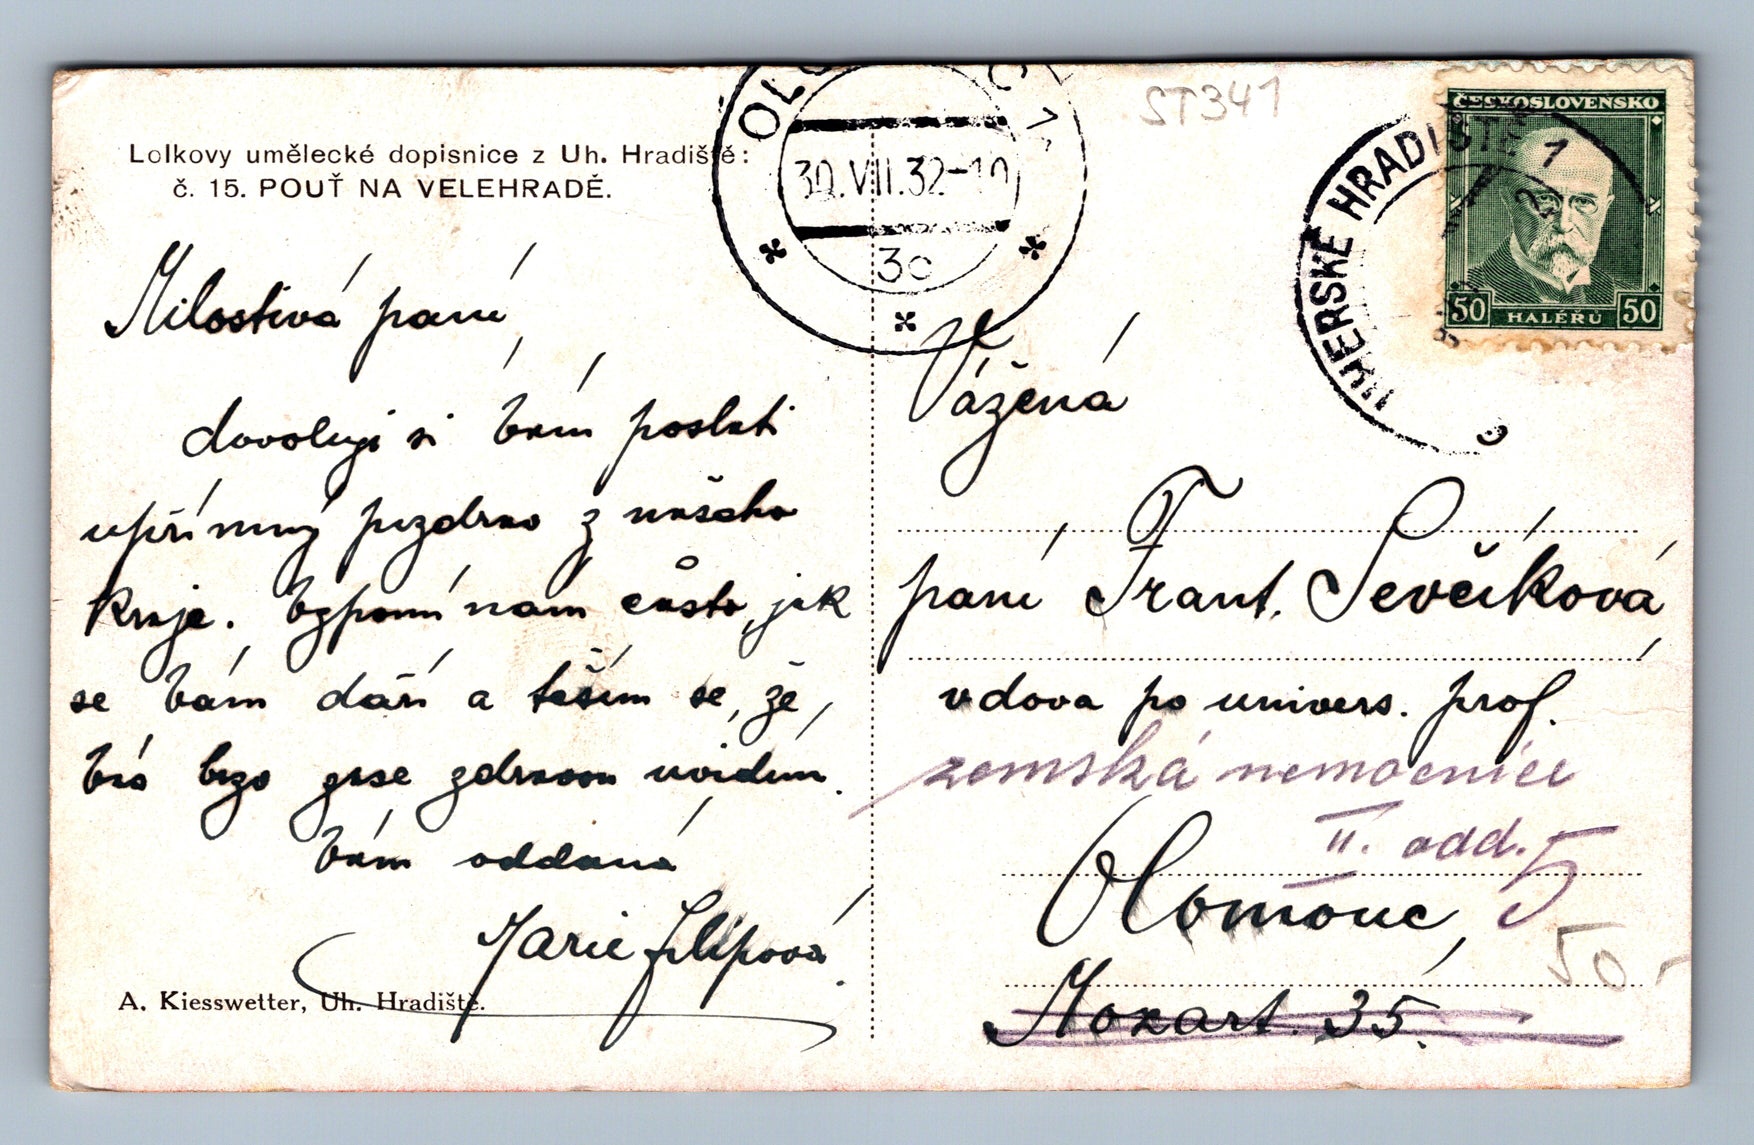 Lolkovy umělecké dopisnice z Uh. Hradiště:
č. 15. POUŤ NA VELEHRADĚ.
Milostivá paní,
dovoluji si Vám poslati
upřímný pozdrav z našeho
kraje. Vzpomínám často, jak
se Vám daří a těším se, že
Vás brzo zase zdravou uvidím.
Vám oddaná
Marie Filipová.
A. Kiesswetter, Uh. Hradiště.
30.VII.32-10
3c
ST341
UHERSKÉ HRADIŠTĚ 1
ČESKOSLOVENSKO
50 HALÉŘŮ 50
Vážená
paní Frant. Ševčíková,
vdova po univers. prof.
zemská nemocnice
II. odd. 5
Olomouc,
Mozart. 35.
50.-